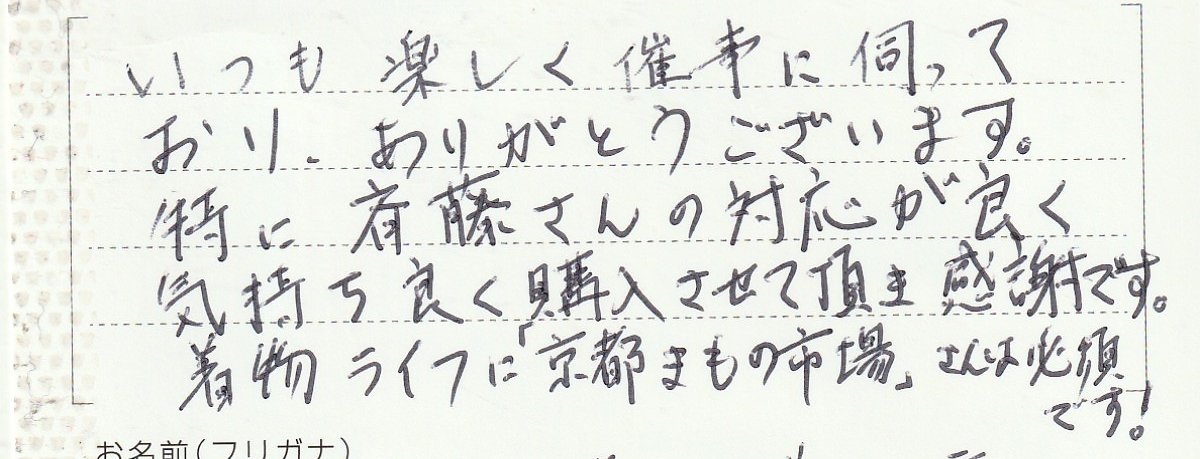 いつも楽しく催事に伺って
おり、ありがとうございます。
特に斉藤さんの対応が良く
気持ち良く購入させて頂き感謝です。
着物ライフに「京都きもの市場」さんは必須
です!
お名前(フリガナ)